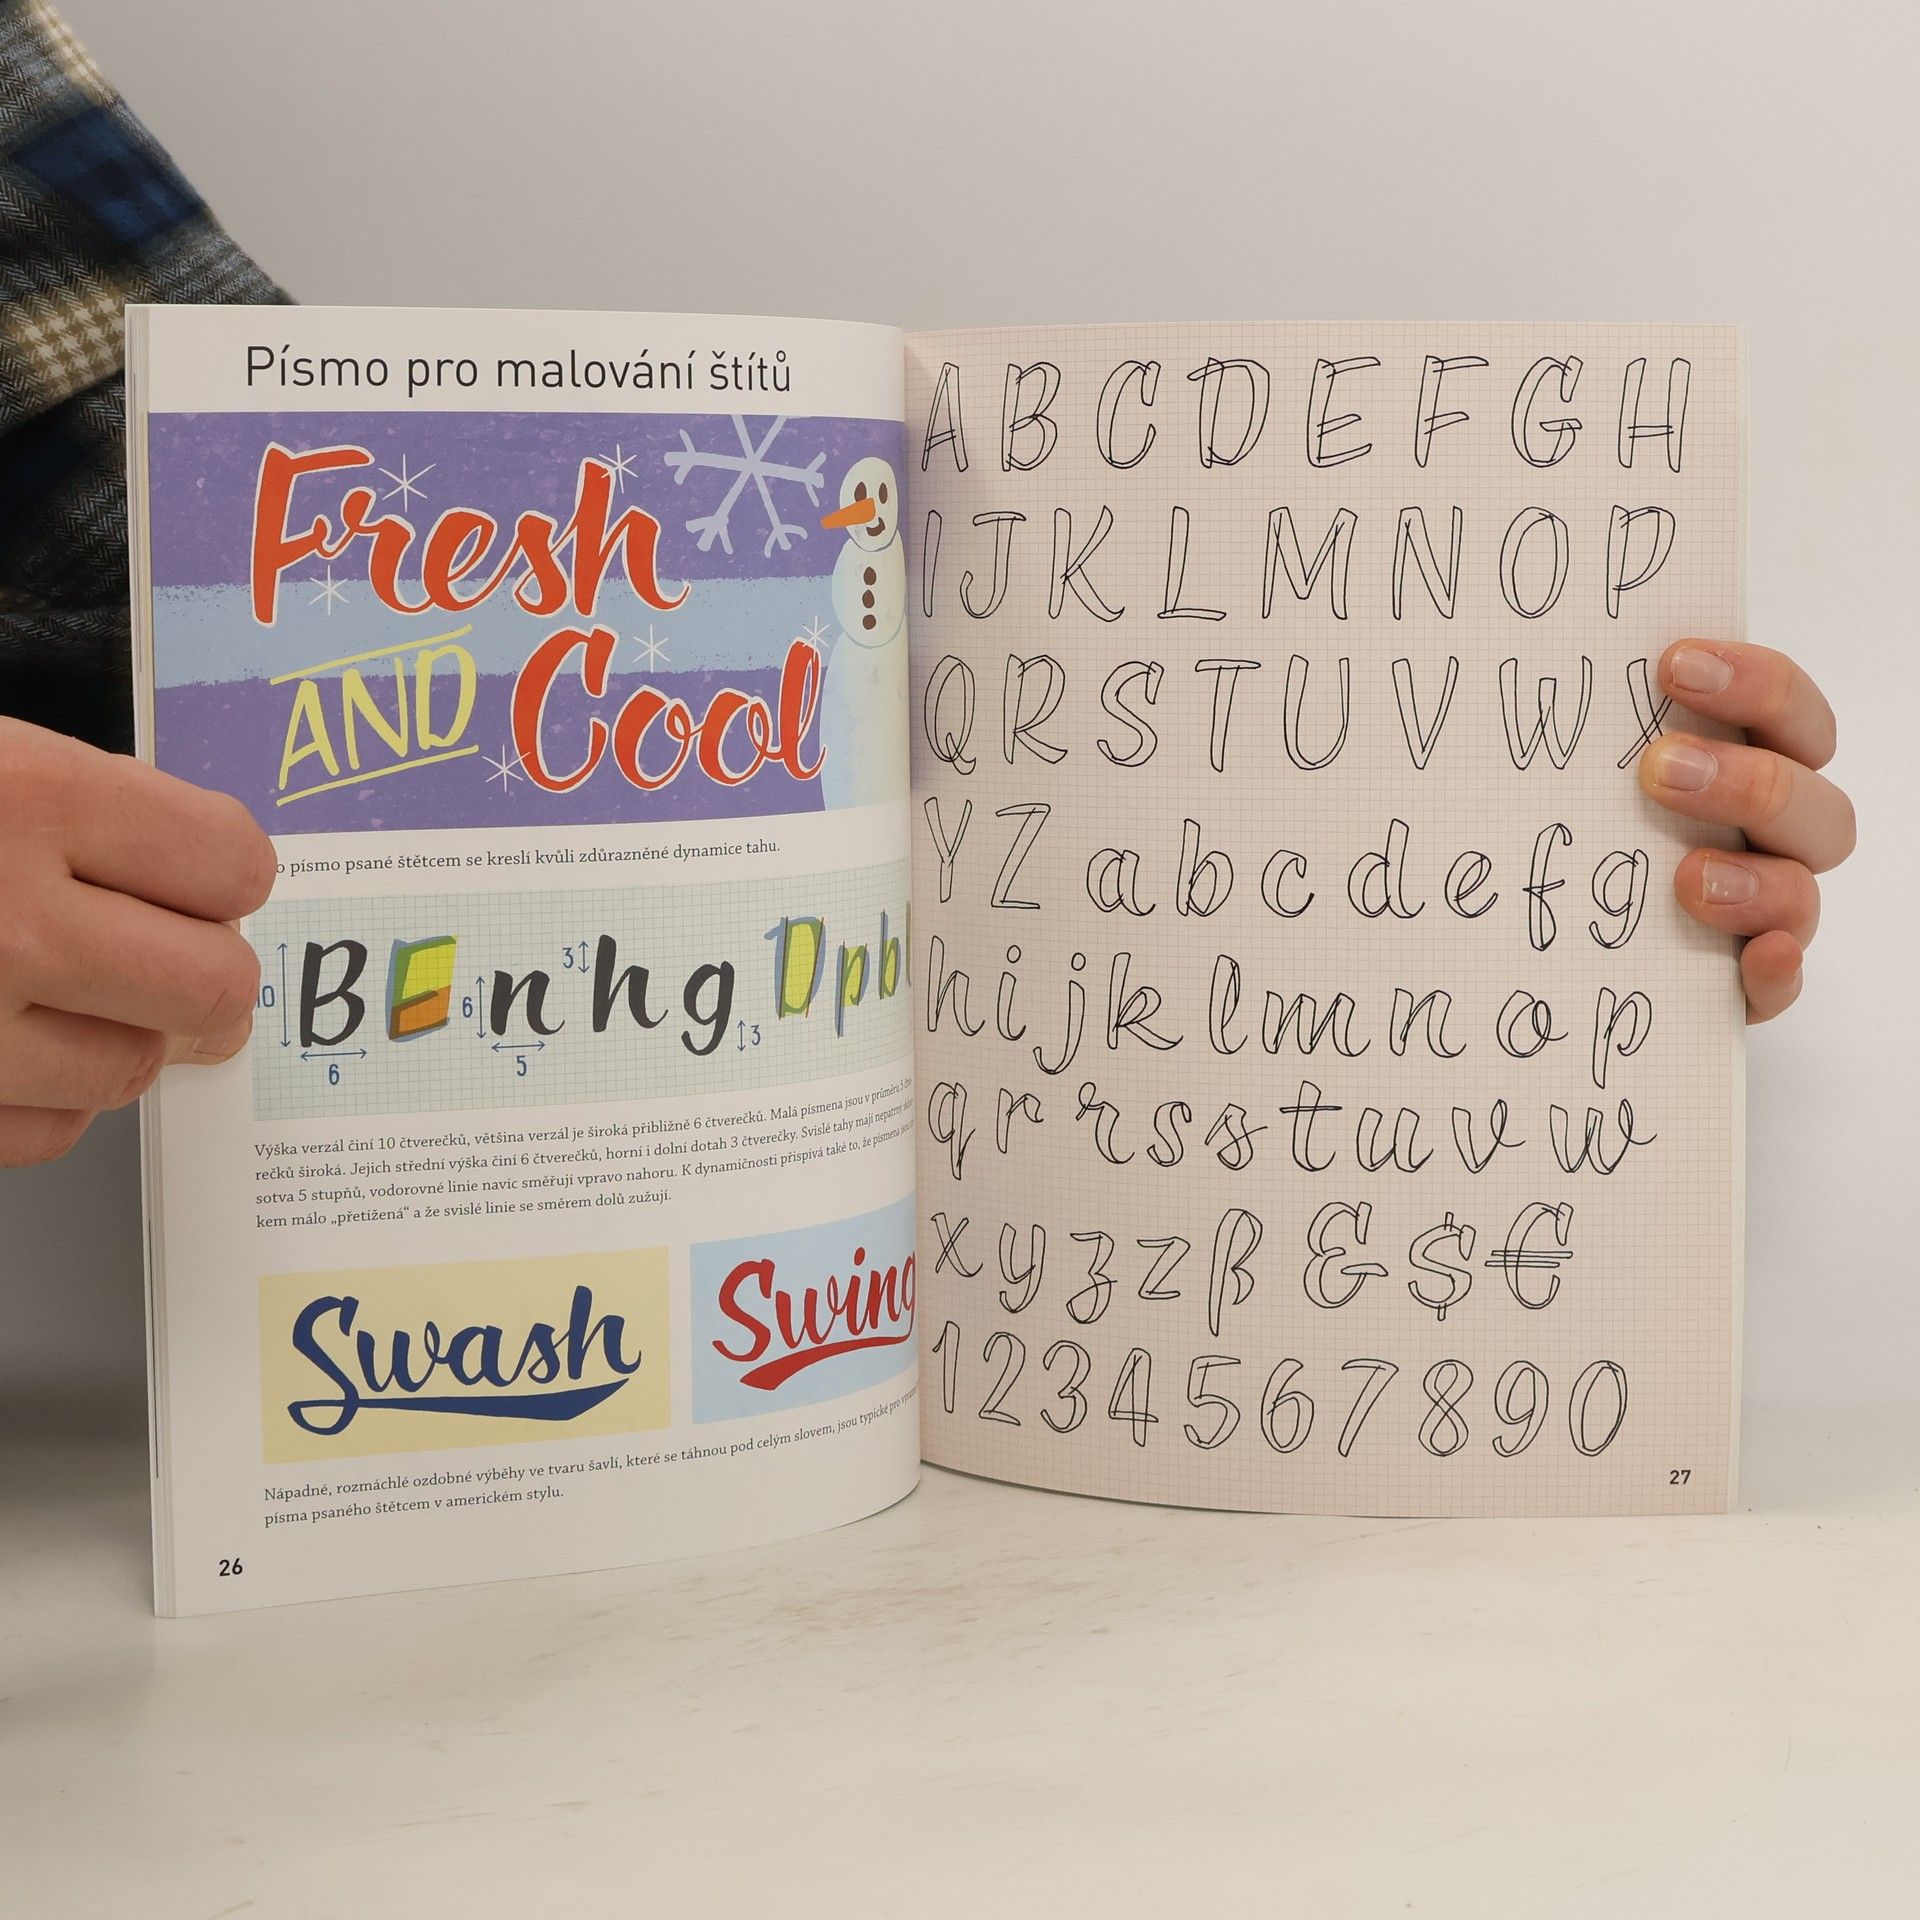 Písmo pro malování štítů
Fresh
AND Cool
písmo psané štětcem se kreslí kvůli zdůrazněné dynamice tahu.
10 B E 6 n 3 h g 3 D p b
6 5
Výška verzál činí 10 čtverečků, většina verzál je široká přibližně 6 čtverečků. Malá písmena jsou v průměru 5 čtve-
rečků široká. Jejich střední výška činí 6 čtverečků, horní i dolní dotah 3 čtverečky. Svislé tahy mají nepatrný
sotva 5 stupňů, vodorovné linie navíc směřují vpravo nahoru. K dynamičnosti přispívá také to, že písmena jsou
kem málo „přetížená“ a že svislé linie se směrem dolů zužují.
Swash
Swing
Nápadné, rozmáchlé ozdobné výběhy ve tvaru šavlí, které se táhnou pod celým slovem, jsou typické pro
písma psaného štětcem v americkém stylu.
26
A B C D E F G H
I J K L M N O P
Q R S T U V W X
Y Z a b c d e f g
h i j k l m n o p
q r r s s t u v w
x y z z ß & $ €
1 2 3 4 5 6 7 8 9 0
27